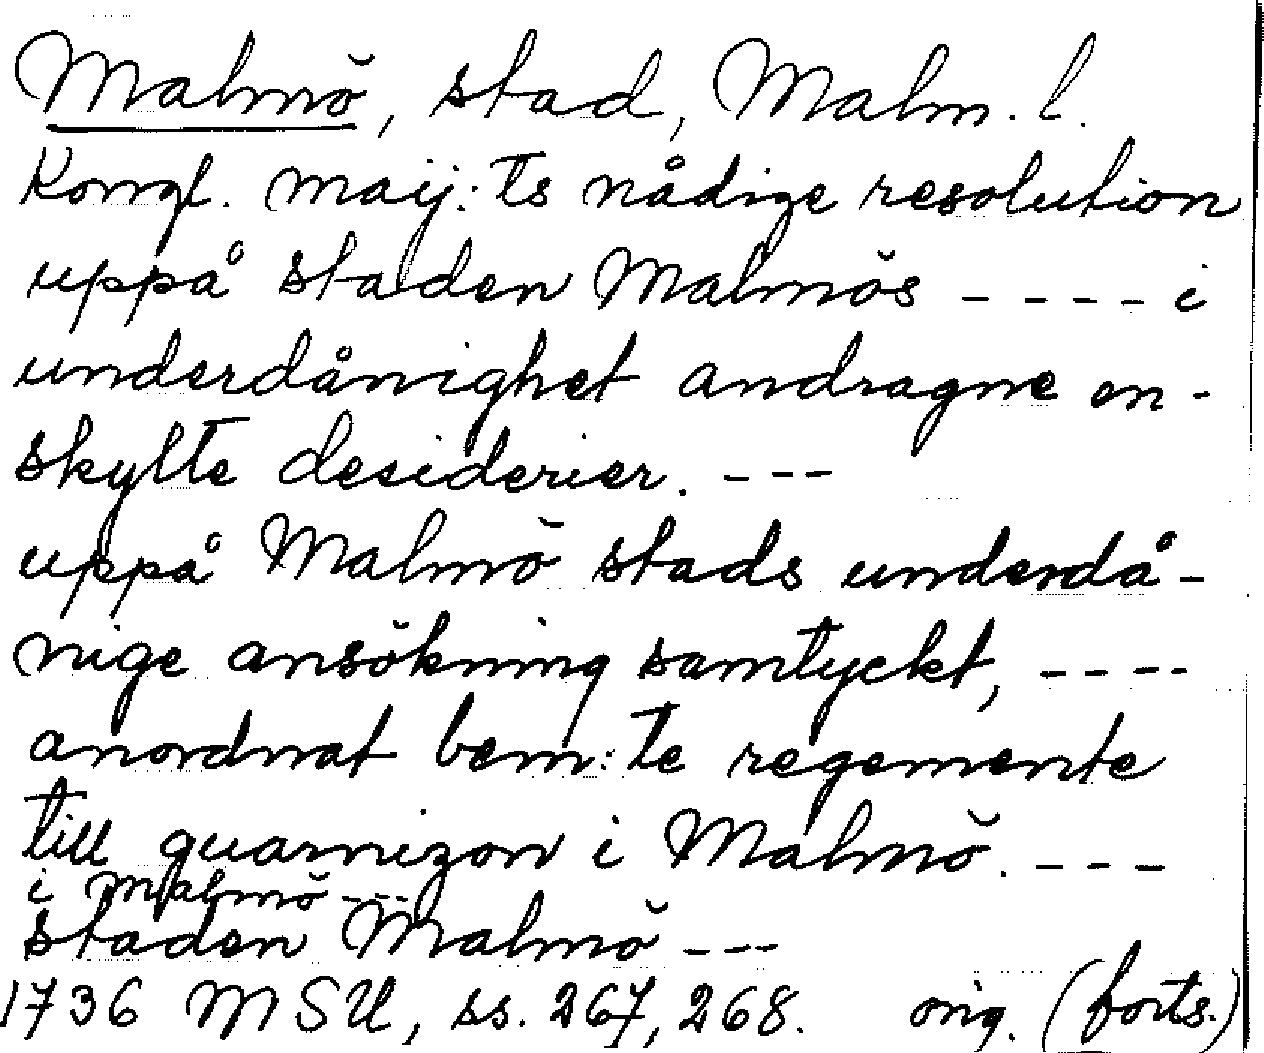 Malmö, stad, Malm. l.
Kongl. maij:ts nådige resolution
uppå staden Malmös - - - - i
underdånighet andragne en-
skylte desiderier. - - -
uppå Malmö stads underdå-
nige ansökning samtyckt, - - - -
anordnat bem:te regemente
till guarnizon i Malmö. - - -
i Malmö - - -
staden Malmö - - -
1736 MSU, ss. 267, 268. orig. (forts.)